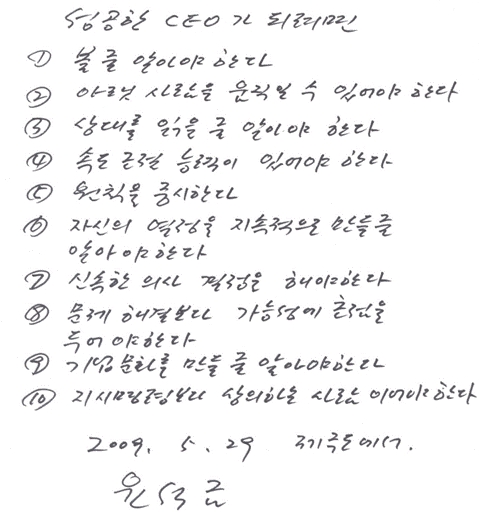 성공한 CEO가 되려면
① 볼 줄 알아야 한다
② 아랫사람을 움직일 수 있어야 한다
③ 상대를 읽을 줄 알아야 한다
④ 속도 조절 능력이 있어야 한다
⑤ 원칙을 중시한다
⑥ 자신의 열정을 지속적으로 만들 줄
알아야 한다
⑦ 신속한 의사 결정을 해야 한다
⑧ 문제 해결보다 가능성에 초점을
두어야 한다
⑨ 기업문화를 만들 줄 알아야 한다
⑩ 지시 명령보다 상의하는 사람이어야 한다
2009. 5. 29 제주도에서.